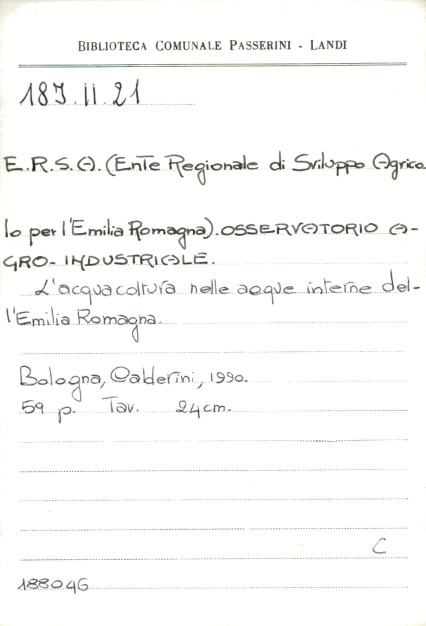 BIBLIOTECA COMUNALE PASSERINI - LANDI
18J.II.21
E.R.S.A. (Ente Regionale di Sviluppo Agrico
lo per l'Emilia Romagna). OSSERVATORIO A-
GRO-INDUSTRIALE.
L'acquacoltura nelle acque interne del-
l'Emilia Romagna.
Bologna, Calderini, 1990.
59 p. Tav. 24cm.
C
188046